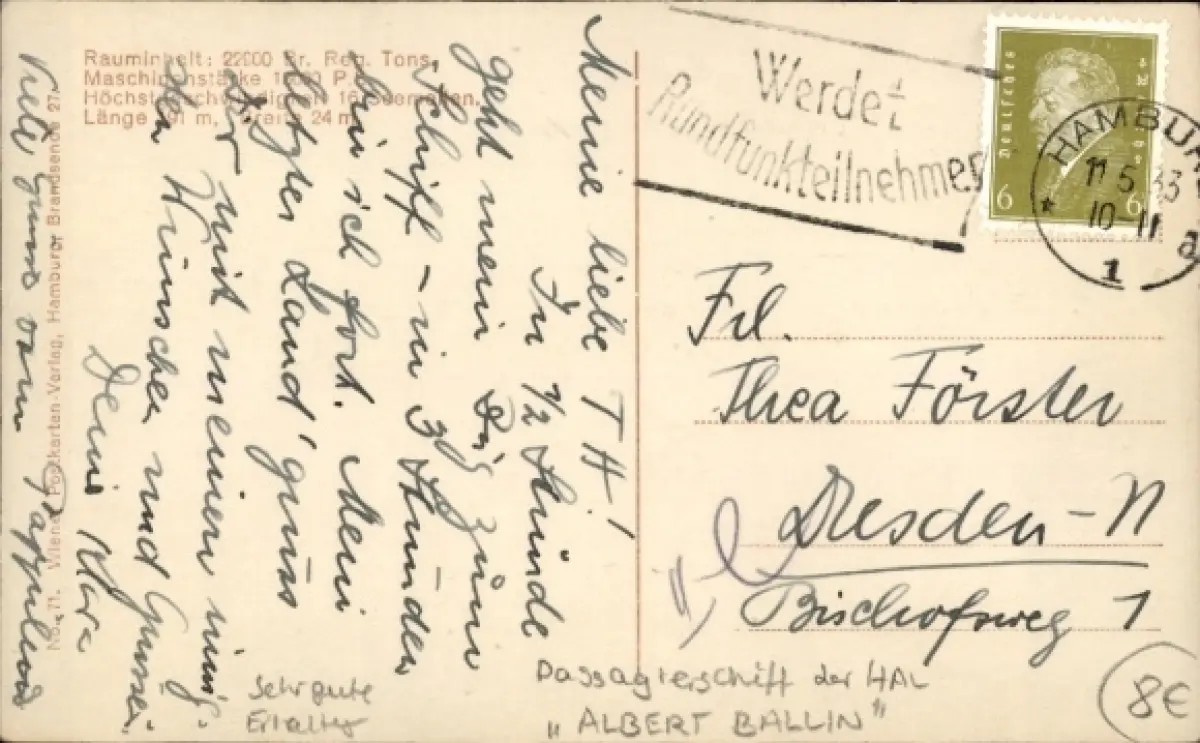 Rauminhalt: 22000 Br. Reg. Tons.
Maschinenstärke P.
Höchstgeschwindigkeit 16 Seemeilen.
Länge 191 m, Breite 24 m
No. 71. Wiener Postkarten-Verlag, Hamburg, Brandsende 27.
Meine liebe TH!
In 1/2 Stunde
geht mein Zug zum
Schiff – in 3 Stunden
bin ich fort. Mein
letzter Land'gruss
Dir mit meinen innig-
sten Wünschen und Grüssen.
Deine Klara
vom
Werdet
Rundfunkteilnehmer
Deutsches Reich
6 6
HAMBURG
11.5.33
10-11
* 1 a
Frl.
Thea Förster
Dresden-N
Bischofsweg 1
Sehr gute
Erhaltung
Passagierschiff der HAL
"ALBERT BALLIN"
8€